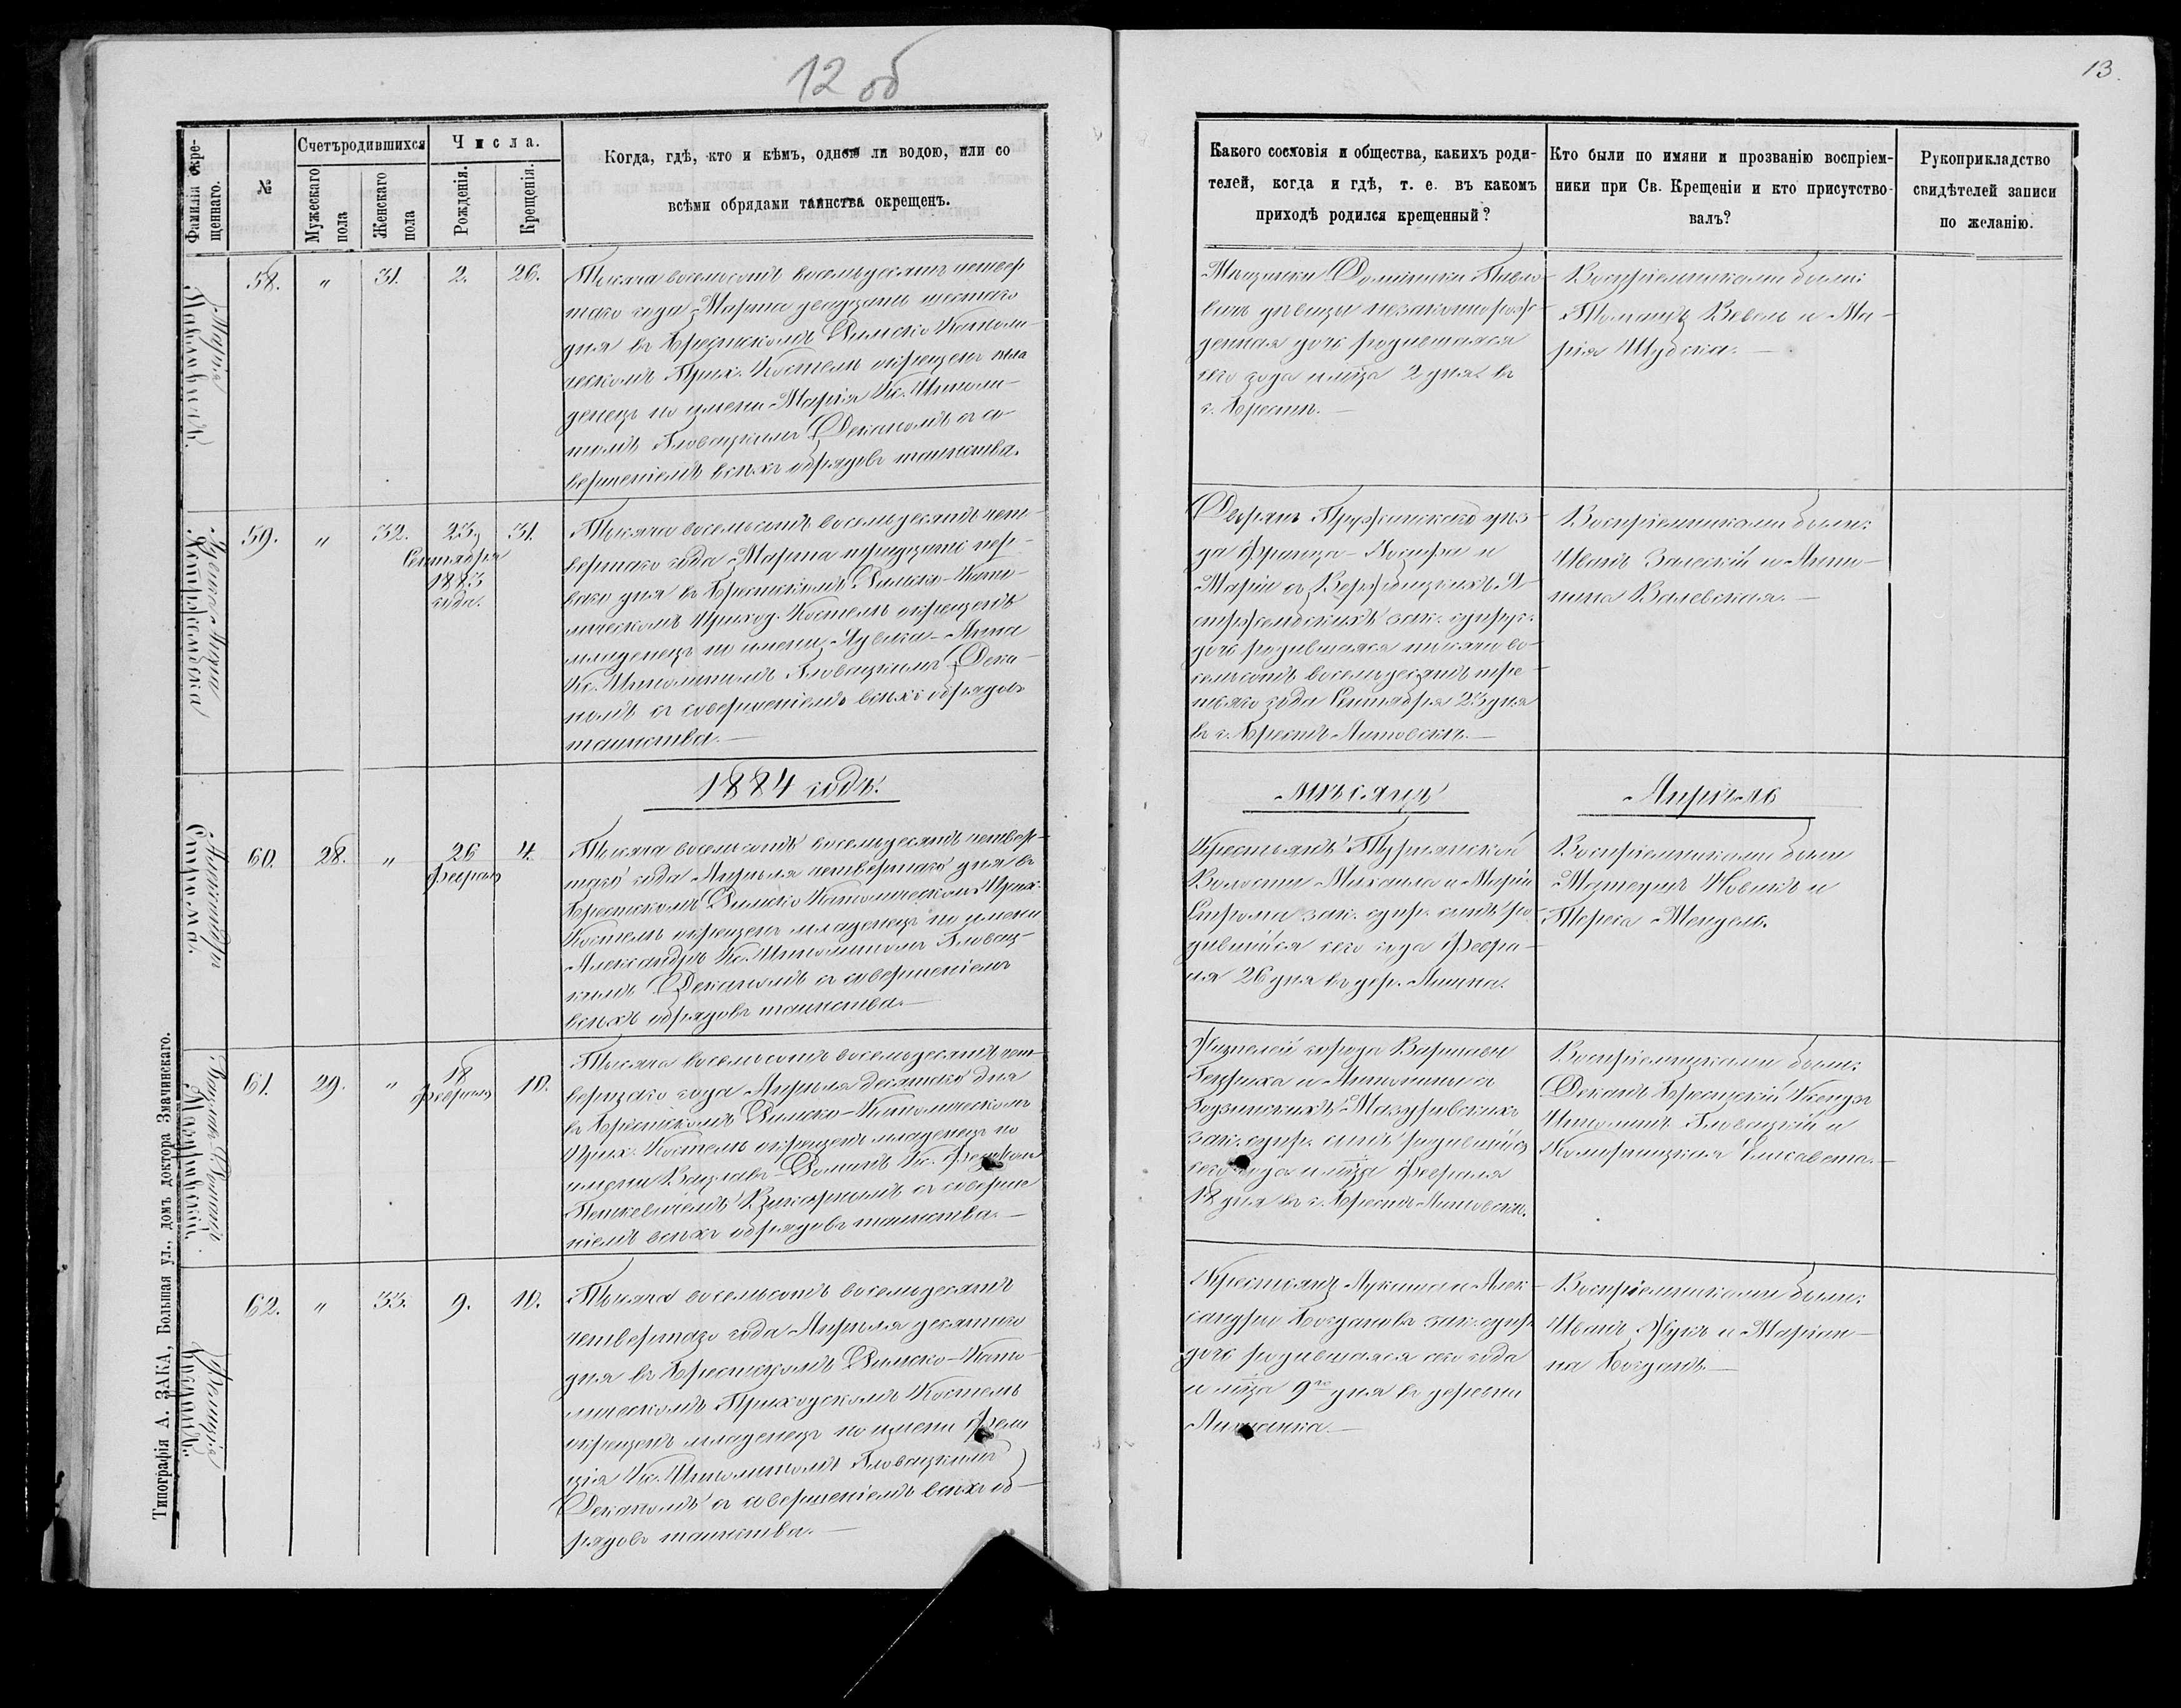 12 об
13.
Фамилія окре-
щеннаго.
№
Счетъ родившихся
Мужескаго
пола
Женскаго
пола
Числа.
Рожденія.
Крещенія.
Когда, гдѣ, кто и кѣмъ, одною ли водою, или со
всѣми обрядами таинства окрещенъ.
Какого сословія и общества, какихъ роди-
телей, когда и гдѣ, т. е. въ какомъ
приходѣ родился крещенный?
Кто были по имяни и прозванію воспріем-
ники при Св. Крещеніи и кто присутство-
валъ?
Рукоприкладство
свидѣтелей записи
по желанію.
Марія
58.
"
31.
2.
26.
Тысяча восемьсотъ восемьдесятъ четвер
таго года Марта двадцать шестаго
дня въ Брестскомъ Римско Католи-
ческомъ Прих. Костелѣ окрещенъ мла
денецъ по имени Марія Кс. Ипполи-
томъ Гловацкимъ Деканомъ съ со
вершеніемъ всѣхъ обрядовъ таинства.
Мѣщанки Доминики Павло-
вичъ дѣвицы незаконнорож-
денная дочь родившаяся
сего года и м̃ца 2 дня въ
г. Брестѣ.—
Воспріемниками были:
Томашъ Вевель и Ма-
рія Шубска.—
59.
"
32.
23
Сентября
1883
года.
31.
Тысяча восемьсотъ восемьдесятъ чет-
вертаго года Марта тридцать пер-
ваго дня въ Брестскомъ Римско-Като-
лическомъ Приход. Костелѣ окрещенъ
младенецъ по имени Ядвига-Анна
Кс. Ипполитомъ Гловацкимъ Дека-
номъ съ совершеніемъ всѣхъ обрядовъ
таинства.—
Дворянъ Пружанскаго уѣз-
да Франца-Іосифа и
Маріи съ
зак. супруг.
дочь родившаяся тысяча во-
семьсотъ восемьдесятъ тре-
тьяго года Сентября 23 дня
въ г. Брестъ Литовскѣ.—
Воспріемниками были:
Иванъ Залескій и Анто-
нина Валевская.—
1884 годъ.
мѣсяцъ
Апрѣль
Александръ
60.
28.
"
26
Февраля
4.
Тысяча восемьсотъ восемьдесятъ четвер-
таго года Апрѣля четвертаго дня въ
Брестскомъ Римско Католическомъ Прих.
Костелѣ окрещенъ младенецъ по имени
Александръ Кс. Ипполитомъ Гловац-
кимъ Деканомъ съ совершеніемъ
всѣхъ обрядовъ таинства.—
Крестьянъ Турнянской
Волости Михаила и Маріи
зак. супр. сынъ ро-
дившійся сего года Февра-
ля 26 дня въ дер.
Воспріемниками были
Матеушъ Новикъ и
Тереса Мендель.
61.
29.
"
18
Февраля
10.
Тысяча восемьсотъ восемьдесятъ чет-
вертаго года Апрѣля десятаго дня
въ Брестскомъ Римско-Католическомъ
Прих. Костелѣ окрещенъ младенецъ по
имени Вацлавъ Романъ Кс.
Викарнымъ съ соверше
ніемъ всѣхъ обрядовъ таинства.—
Жителей города Варшавы
Генриха и Антонины съ
Мазуровскихъ
зак. супр. сынъ родившійся
сего года и м̃ца Февраля
18 дня въ г. Брестъ Литовскѣ.
Воспріемниками были:
Деканъ Брестскій Ксендзъ
Ипполитъ Гловацкій и
Елисавета.—
Фелиція
62.
"
33.
9.
10.
Тысяча восемьсотъ восемьдесятъ
четвертаго года Апрѣля десятаго
дня въ Брестскомъ Римско-Като-
лическомъ Приходскомъ Костелѣ
окрещенъ младенецъ по имени Фели
ція Кс. Ипполитомъ Гловацкимъ
Деканомъ съ совершеніемъ всѣхъ об-
рядовъ таинства.—
Крестьянъ Лукаша и Алек-
сандры Богданъ зак. супр.
дочь родившаяся сего года
и м̃ца 9го дня въ деревни
Воспріемниками были:
Иванъ Жукъ и Маріан-
на Богданъ.—
Типографія А. ЗАКА, Большая ул., домъ доктора Значинскаго.